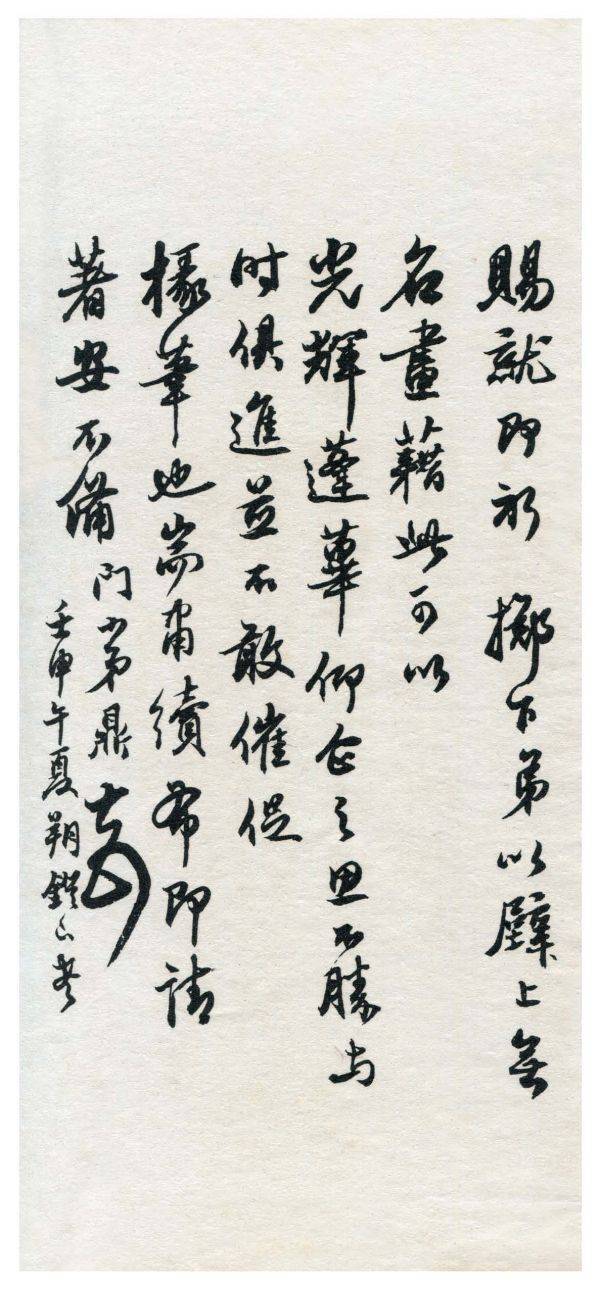 賜就即祈 擲下弟以壁上無
名畫藉此可以
光輝蓬蓽仰企之思不勝与
时俱進並不敢催促
椽筆也耑肅續希即請
著安不備 門小弟鼎
壬申午夏朔